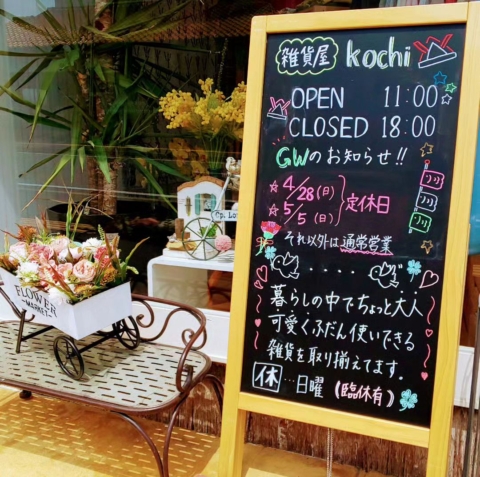 雑貨屋 kochi
OPEN 11:00
CLOSED 18:00
GWのお知らせ!!
☆4/28(日)
☆5/5(日)
定休日
それ以外は通常営業
暮らしの中でちょっと大人
可愛くふだん使いできる
雑貨を取り揃えてます.
休…日曜(臨休有)
FLOWER
MARKET